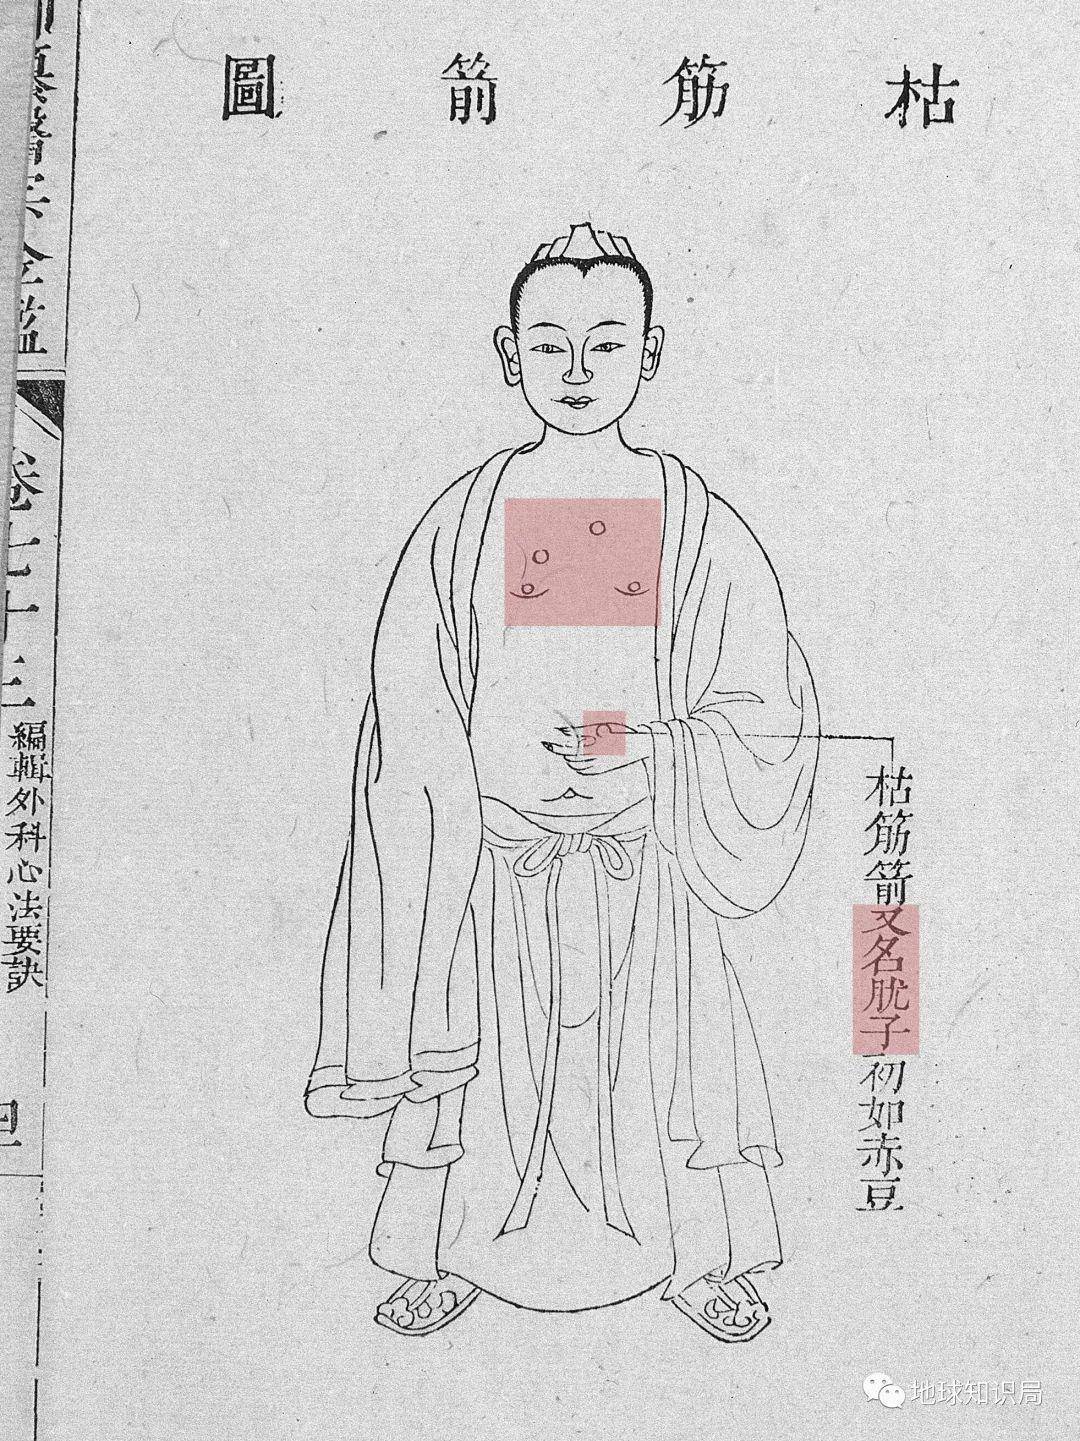 枯筋箭圖
枯筋箭又名肬子初如赤豆
御纂醫宗金鑑
卷七十三
編輯外科心法要訣
地球知识局